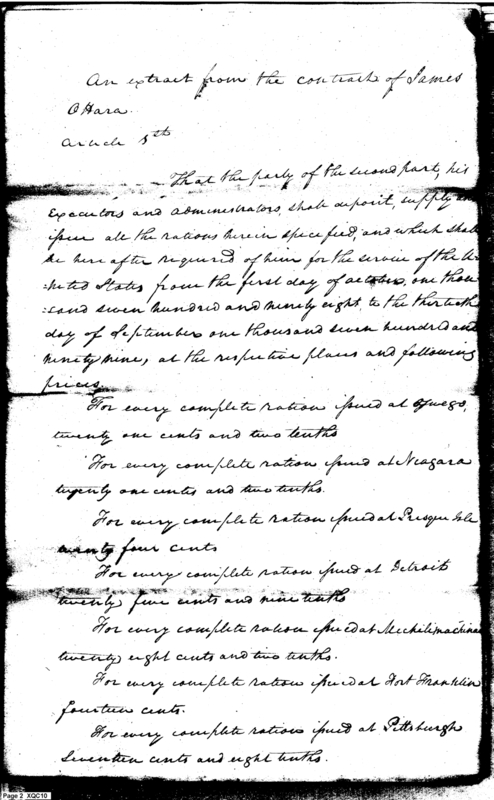 An extract from the contract of James
OHara
Article 5th
That the party of the second part, his
Executors and administrators, shall deposit, supply and
issue all the rations herein specified, and which shall
be here after required of him for the service of the U-
:nited States from the first day of october, one thou
:sand seven hundred and ninety eight, to the thirtieth
day of September one thousand seven hundred and
ninety nine, at the respective places and following
prices.
For every complete ration issued at Oswego,
twenty one cents and two tenths
For every complete ration issued at Niagara
twenty one cents and two tenths.
For every complete ration issued at Presque Isle
twenty four cents
For every complete ration issued at Detroit
twenty five cents and nine tenths
For every complete ration issued at Michilimackinac
twenty eight cents and two tenths.
For every complete ration issued at Fort Franklin
fourteen cents.
For every complete ration issued at Pittsburgh
Seventeen cents and eight tenths.
Page 2 XQC10